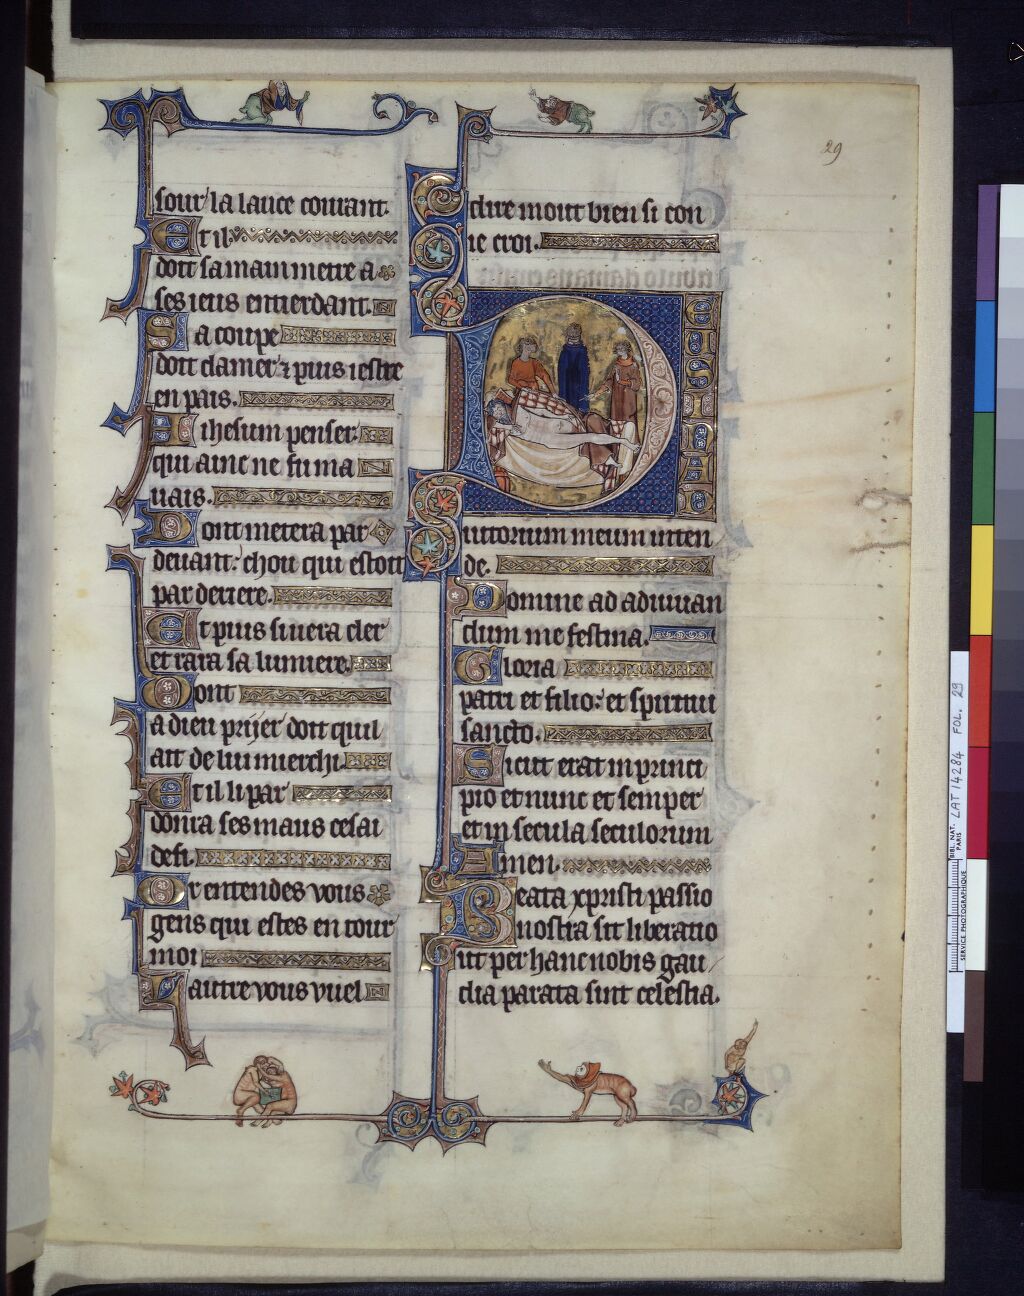 sour la lance courant.
Et il
doit sa main metre a
ses ieus en tierdant.
Sa coupe
doit clamer ⁊ puis iestre
en pais.
A ihesum penser
qui ainc ne fu ma
uais.
Dont metera par
deuant: chou qui estoit
par deriere.
Et puis si uera cler
et rara sa lumiere.
Dont
a dieu prijer doit quil
ait de lui mierchi.
Et il li par
donra ses maus ce sai
de fi.
Or entendes vous
gens qui estes en tour
moi
Lautre vous vuel
dire mout bien si con
ie croi.
Deus in
adiutorium meum inten
de.
Domine ad adiuuan
dum me festina.
Gloria
patri et filio: et spiritui
sancto.
Sicut erat in princi
pio et nunc et semper
et in secula seculorum
Amen.
Beata xpristi passio
nostra sit liberatio
ut per hanc nobis gau
dia parata sint celestia.
29
BIBL. NAT. PARIS LAT 14284 FOL. 29
SERVICE PHOTOGRAPHIQUE